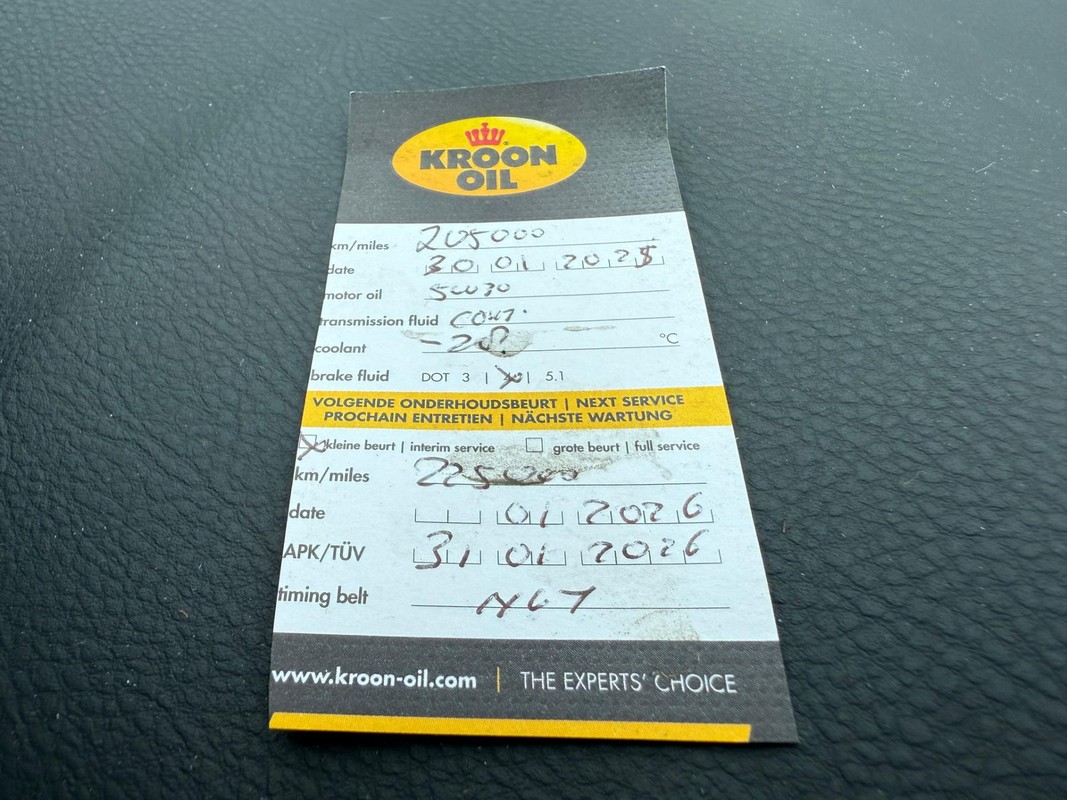 KROON
OIL
km/miles 205000
date 30 01 2025
motor oil 5W30
transmission fluid cont.
coolant -28 °C
brake fluid DOT 3 | | 5.1
VOLGENDE ONDERHOUDSBEURT | NEXT SERVICE
PROCHAIN ENTRETIEN | NÄCHSTE WARTUNG
kleine beurt | interim service grote beurt | full service
km/miles 225000
date 01 2026
APK/TÜV 31 01 2026
timing belt
www.kroon-oil.com | THE EXPERTS' CHOICE